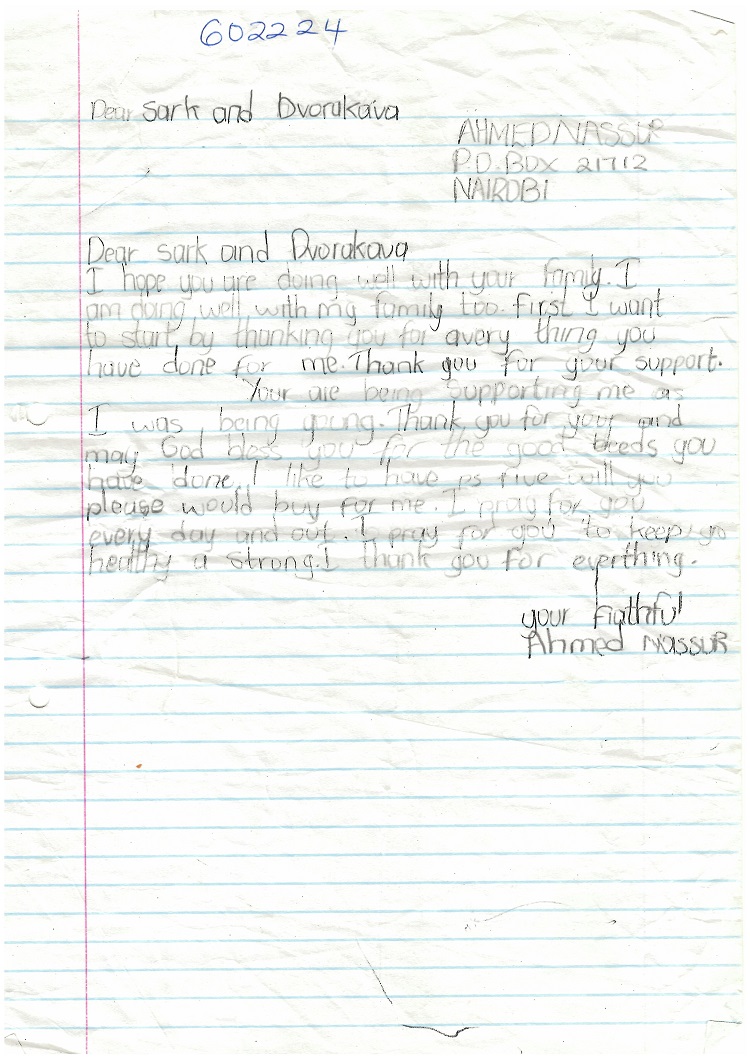 602224
Dear Sark and Dvorakava
AHMED NASSUR
P.O. BOX 21712
NAIROBI
Dear sark and Dvorakava
I hope you are doing well with your family. I
am doing well with my family too. first I want
to start by thanking you for avery thing you
have done for me. Thank you for your support.
Your are being supporting me as
I was being young. Thank you for your and
may God bless you for the good deeds you
have done. I like to have ps five will you
please would buy for me. I pray for you
every day and out. I pray for you to keep go
healthy a strong. I thank you for everthing.
your fiathful
Ahmed NASSUR